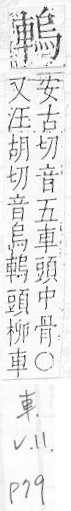 安古切音五車頭中骨○
又汪胡切音烏頭柳車
車.
V.11.
P79